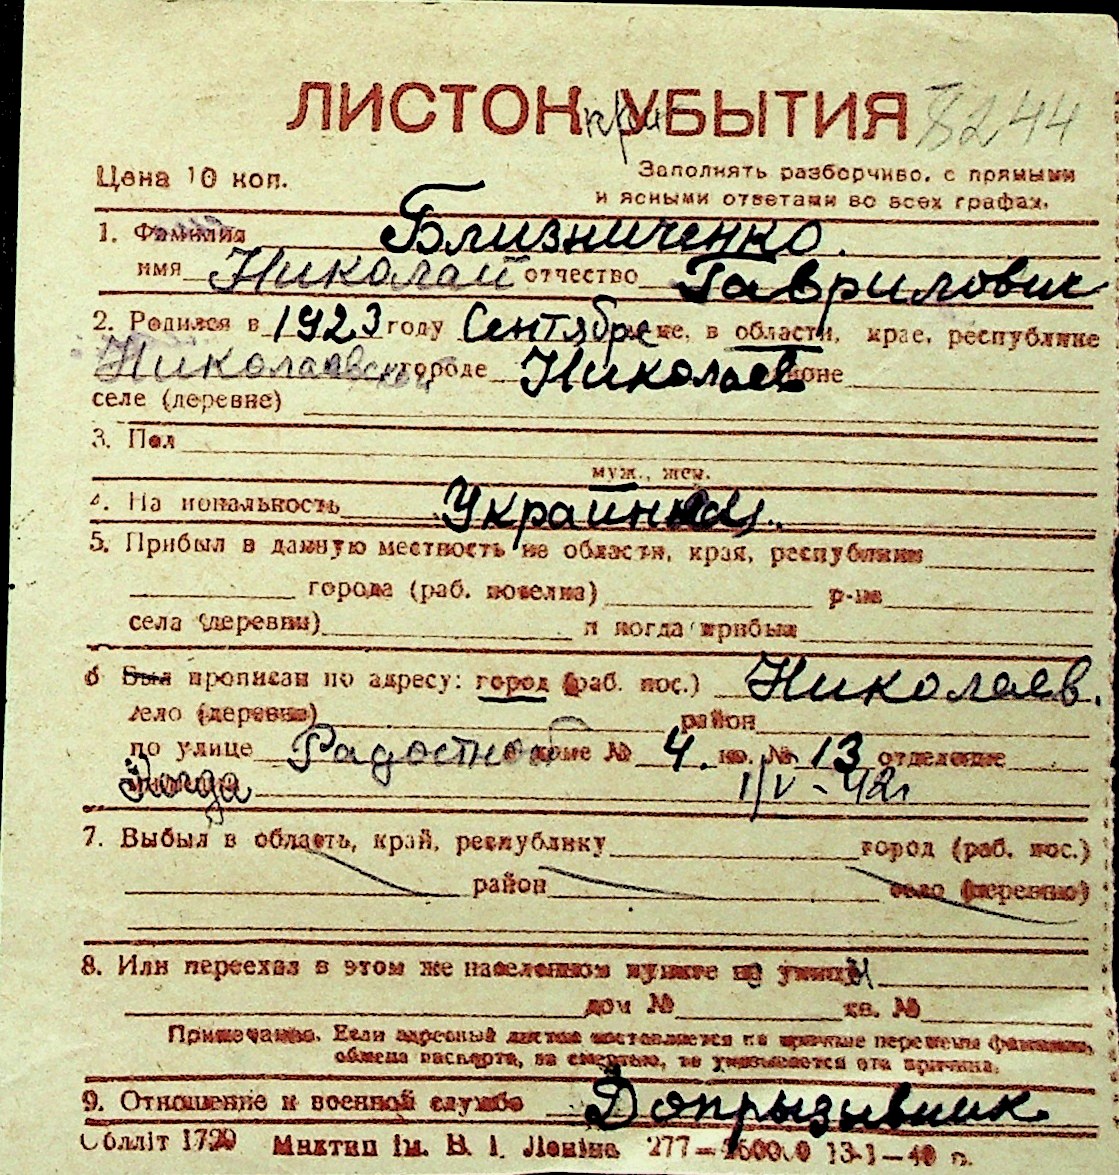 ЛИСТОК при УБЫТИЯ 8244
Цена 10 коп. Заполнять разборчиво, с прямыми
и ясными ответами во всех графах.
1. Фамилия Близниченко.
имя Николай отчество Гаврилович
2. Родился в 1923 году Сентябре м-це, в области, крае, республике
Николаевской городе Николаев районе
селе (деревне)
3. Пол
муж., жен.
4. Национальность Украинец.
5. Прибыл в данную местность из области, края, республики
города (раб. поселка) р-на
села (деревни) и когда прибыл
6 Был прописан по адресу: город (раб. пос.) Николаев.
село (деревне) район
по улице Радостной доме № 4. кв. № 13 отделение
Когда 1/V-42г
7. Выбыл в область, край, республику город (раб. пос.)
район село (деревню)
8. Или переехал в этом же населенном пункте на улицу
дом № кв. №
Примечание. Если адресный листок составляется по причине перемены фамилии,
обмена паспорта, за смертью, то указывается эта причина.
9. Отношение к военной службе Допризывник
Облліт 1729 Миктип ім. В. І. Леніна 277— 13-1—40 р.